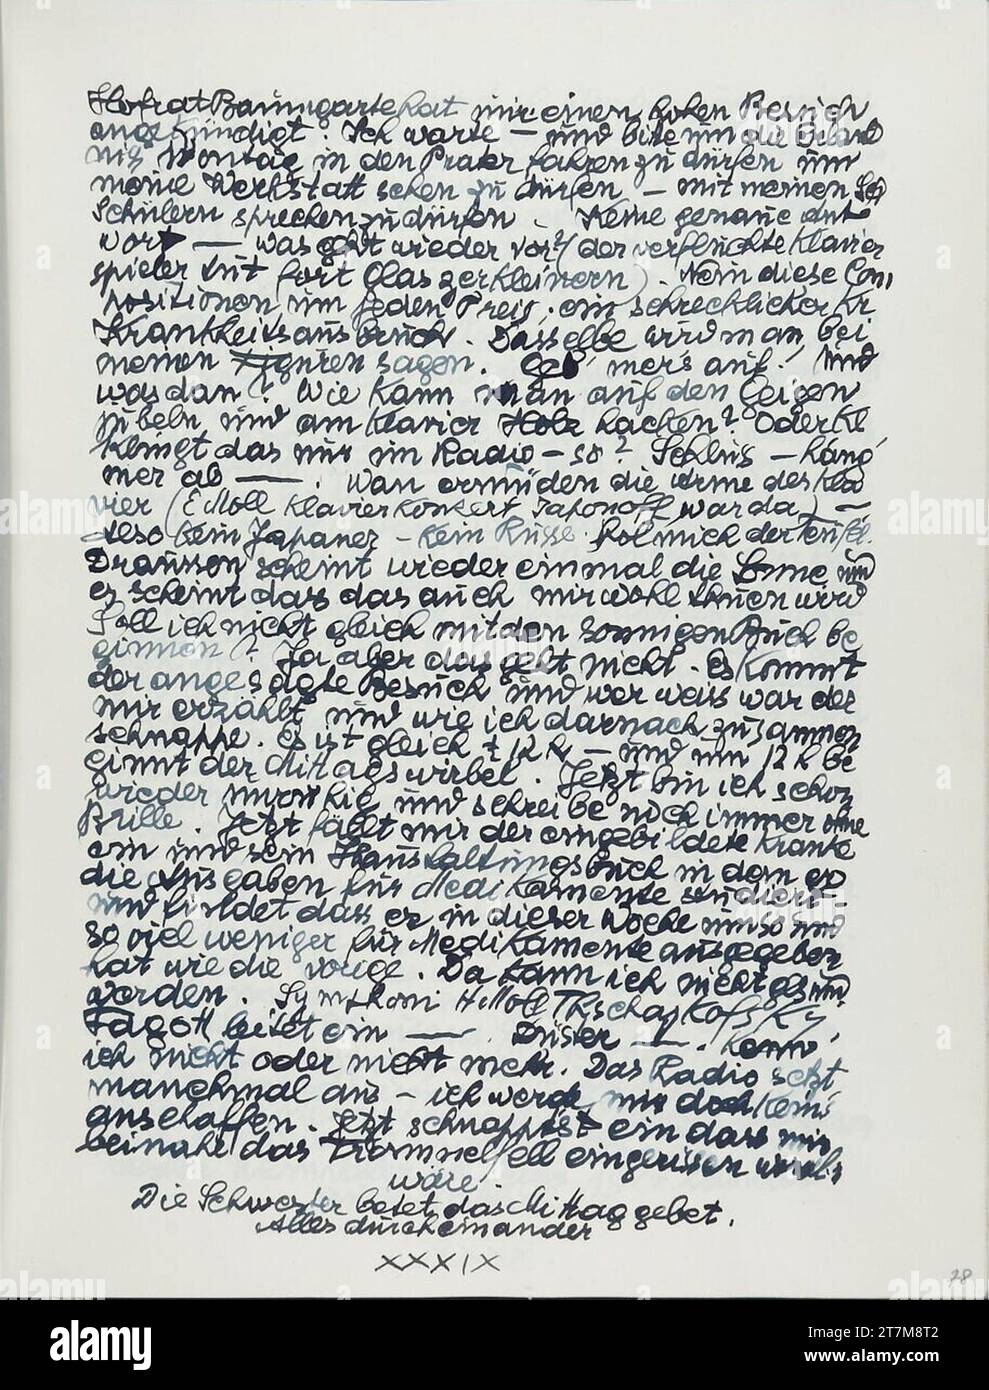 Hofrat Baumgarte hat mir einen hohen Besuch
angekündigt. Ich warte — und bitte um die Erlaub
nis Montag in den Prater fahren zu dürfen um
meine Werkstatt sehen zu dürfen — mit meinen Sch
Schülern sprechen zu dürfen. Keine genaue Ant
wort — was geht wieder vor? (der verfluchte Klavier
spieler tut fort Glas zerkleinern). Nein diese Com
positionen um jeden Preis. ein schrecklicher Kr
Krankheitsausbruch. Dasselbe wird man bei
meinen Figuren sagen. Geb' mers auf! Und
was dan? Wie kann man auf den Geigen
jubeln und am Klavier Holz hacken? Oder kl
klingt das nur im Radio – so? Schluss – häng'
mer ab —. Wan ermüden die Arme des Kla
vier (E Moll Klavierkonzert Saponoff war da) —
Also kein Japaner – kein Russe. Hol mich der Teufel.
Draussen scheint wieder einmal die Sonne und
es scheint dass das auch mir wohl thuen wird
Soll ich nicht gleich mit den sonnigen Buch be
ginnen? Ja aber das geht nicht. Es kommt
der angesagte Besuch und wer weiss war der
mir erzählt und wie ich darnach zusammen
schnappe. Es ist gleich ½ 12 h — und um 12 h be
ginnt der Mittagswirbel. Jetzt bin ich schon
wieder unruhig und schreibe noch immer ohne
Brille. Jetzt fällt mir der eingebildete Kranke
ein und sein Haushaltungsbuch in dem er
die Ausgaben für Medikamente studiert
und findet dass er in dieser Woche umso und
so viel weniger für Medikamente ausgegeben
hat wie die vorige. Da kann ich nicht als und
werden. Symphoni H Moll Thschajkofsky
Fagott leitet ein — Düster —. Kenn'
ich nicht oder nicht mehr. Das Radio setzt
manchmal aus – ich werde mir doch keins
anschaffen. Jetzt schnappts ein dass mir
beinahe das Trommelfell eingerissen
wäre.
Die Schwester betet das Mittaggebet.
Alles durcheinander
XXXIX
28
alamy
Image ID: 2T7M8T2
www.alamy.com